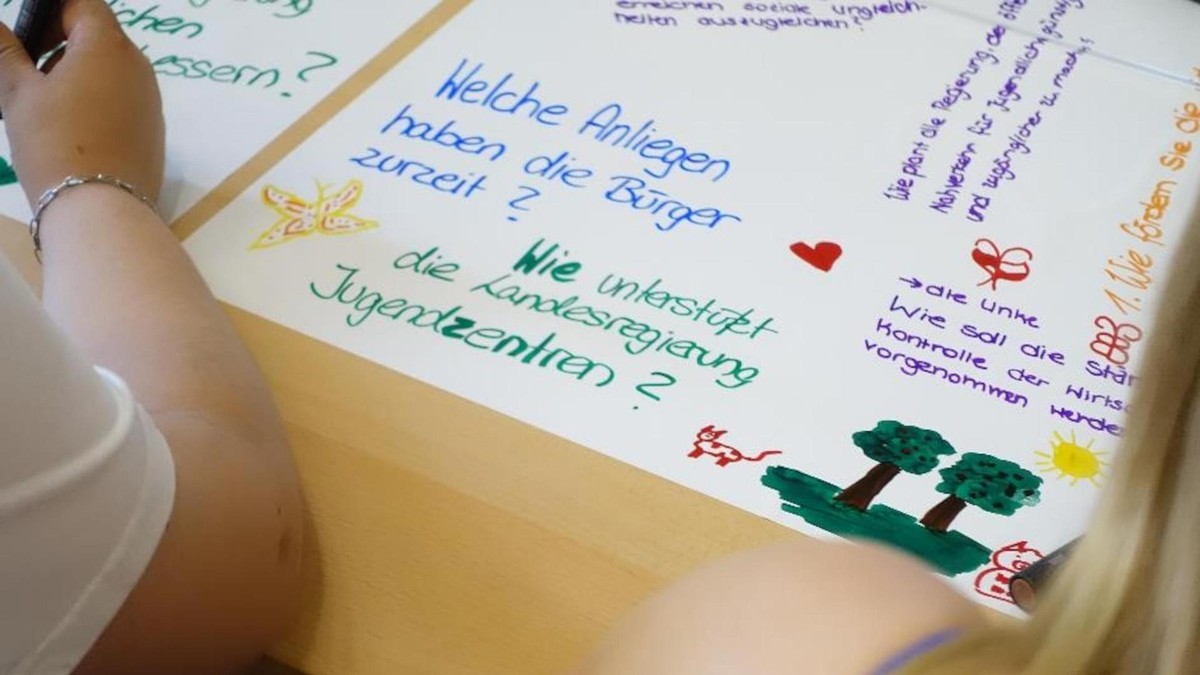 lichen
essern?
erreichen soziale ungleich-
heiten auszugleichen?
Welche Anliegen
haben die Bürger
zurzeit?
Wie unterstützt
die Landesregierung
Jugendzentren?
Wie plant die Regierung, den öffe
Nahverkehr für Jugendliche günstig
und zugänglicher zu mach
→ die Linke
Wie soll die Stär
Kontrolle der Wirtsc
vorgenommen werde
1. Wie fördern Sie die